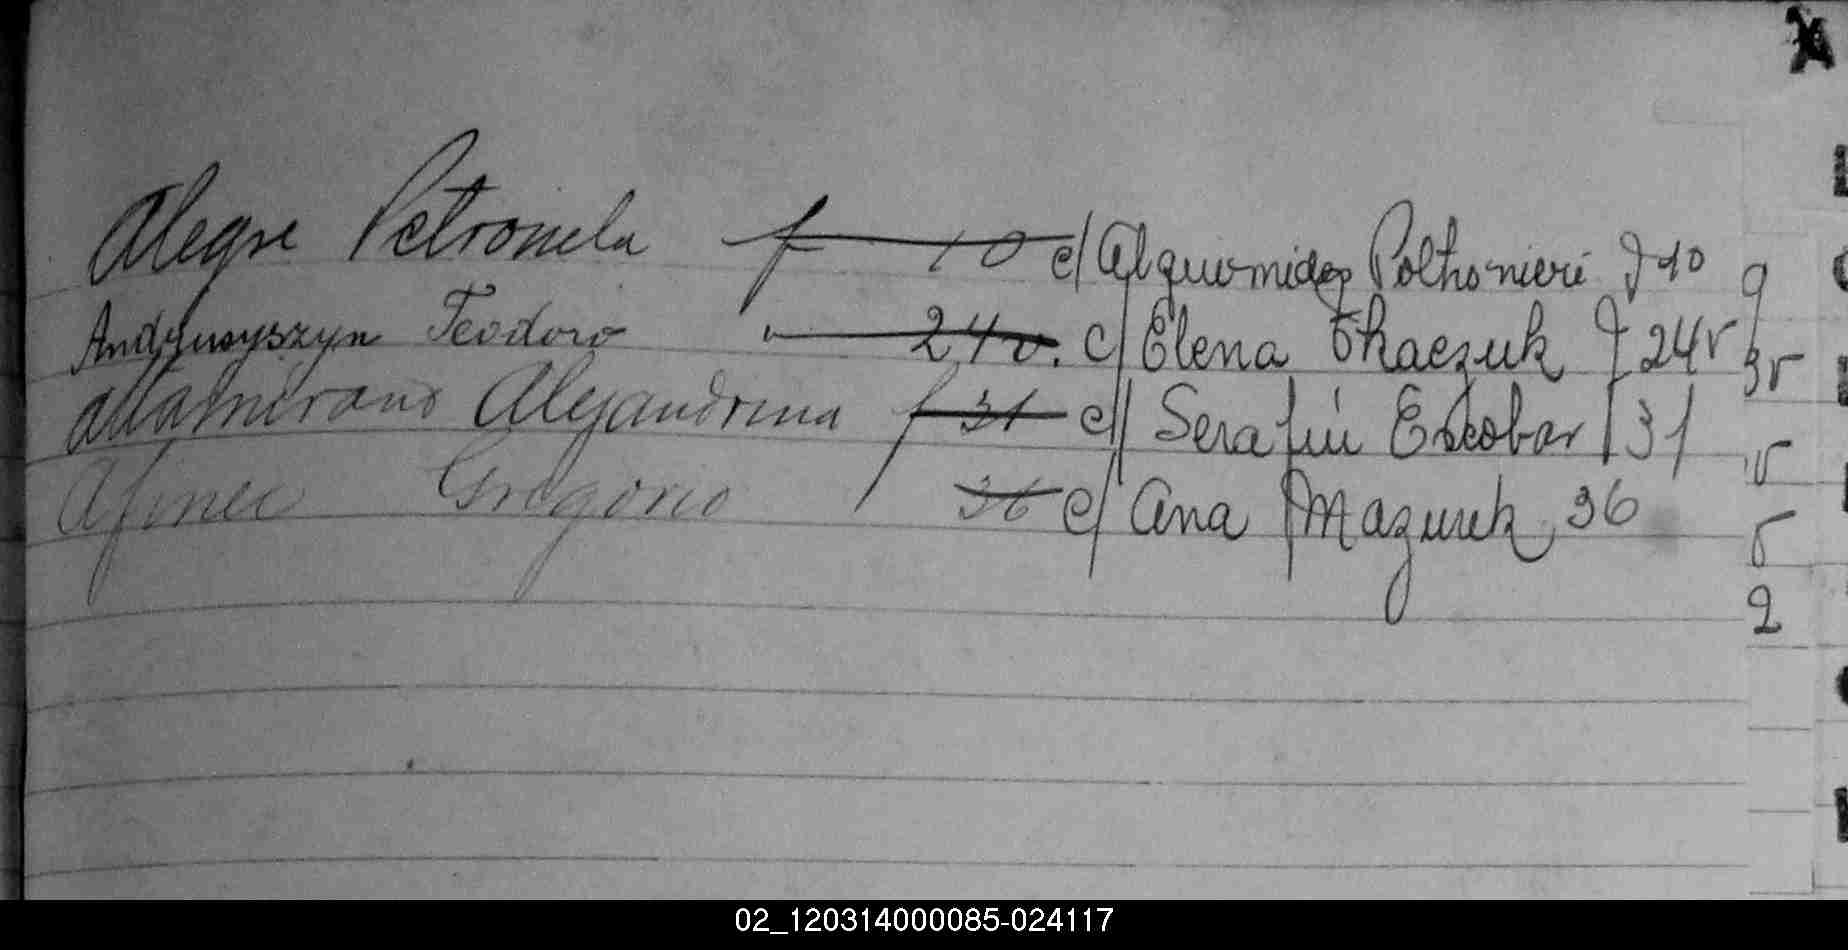 Alegre Petronila f 10 c/ Alquiomides Polhonieri f 10
Andrusyszyn Teodoro " 24v. c/ Elena Tkaczuk f 24v
Altamirano Alejandrina f 31 c/ Serafin Escobar f 31
Gregorio 36 c/ Ana Mazurek 36
02_120314000085-024117